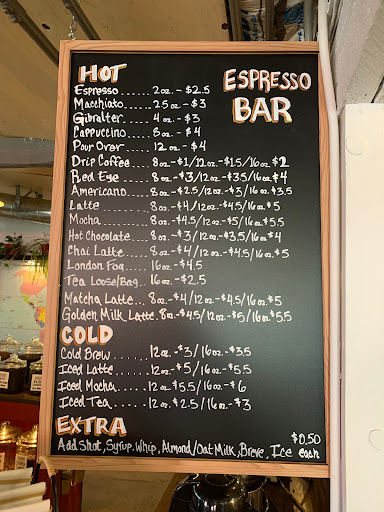 HOT
ESPRESSO
BAR
Espresso......2oz. - $2.5
Macchiato......2.5oz - $3
Gibralter....4oz - $3
Cappuccino....8oz - $4
Pour Over....12oz - $4
Drip Coffee....8oz-$1/12oz-$1.5/16oz.$2
Red Eye.....8oz-$3/12oz-$3.5/16oz$4
Americano....8oz-$2.5/12oz-$3/16oz.$3.5
Latte........8oz-$4/12oz-$4.5/16oz$5
Mocha......8oz-$4.5/12oz-$5/16oz$5.5
Hot Chocolate...8oz-$3/12oz-$3.5/16oz$4
Chai Latte....8oz-$4/12oz-$4.5/16oz$5
London Fog....16oz-$4.5
Tea Loose/Bag..16oz-$2.5
Matcha Latte...8oz-$4/12oz-$4.5/16oz$5
Golden Milk Latte.8oz-$4.5/12oz-$5/16oz$5.5
COLD
Cold Brew......12oz-$3/16oz-$3.5
Iced Latte.....12oz-$5/16oz-$5.5
Iced Mocha....12oz$5.5/16oz-$6
Iced Tea.....12oz$2.5/16oz-$3
EXTRA
$0.50
Add Shot, Syrup, Whip, Almond/Oat Milk, Breve, Ice each